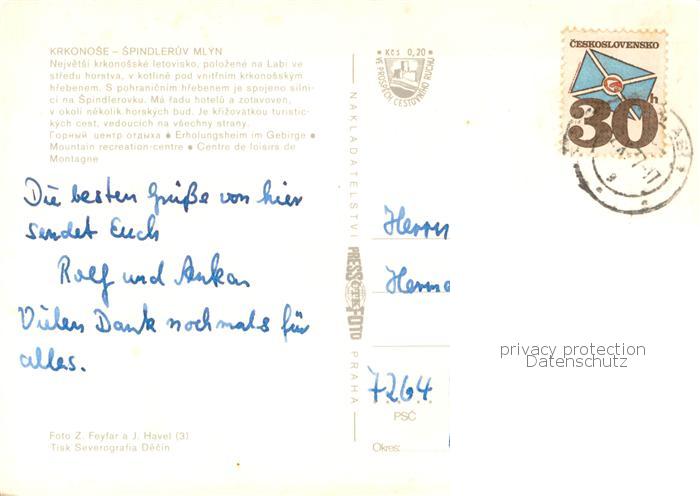 KRKONOŠE – ŠPINDLERŮV MLÝN
Největší krkonošské letovisko, položené na Labi ve
středu horstva, v kotlině pod vnitřním krkonošským
hřebenem. S pohraničním hřebenem je spojeno silni-
cí na Špindlerovku. Má řadu hotelů a zotavoven,
v okolí několik horských bud. Je křižovatkou turistic-
kých cest, vedoucích na všechny strany.
Горный центр отдыха ● Erholungsheim im Gebirge ●
Mountain recreation-centre ● Centre de loisirs de
Montagne
Die besten Grüße von hier
sendet Euch
Rolf und
Vielen Dank nochmals für
alles.
Foto Z. Feyfar a J. Havel (3)
Tisk Severografia Děčín
Kčs 0,20
VE PROSPĚCH CESTOVNÍHO RUCHU
NAKLADATELSTVÍ
PRESSFOTO
ČTK
PRAHA
ČESKOSLOVENSKO
30h
Herrn
Herma
7264
PSČ
Okres:
privacy protection
Datenschutz